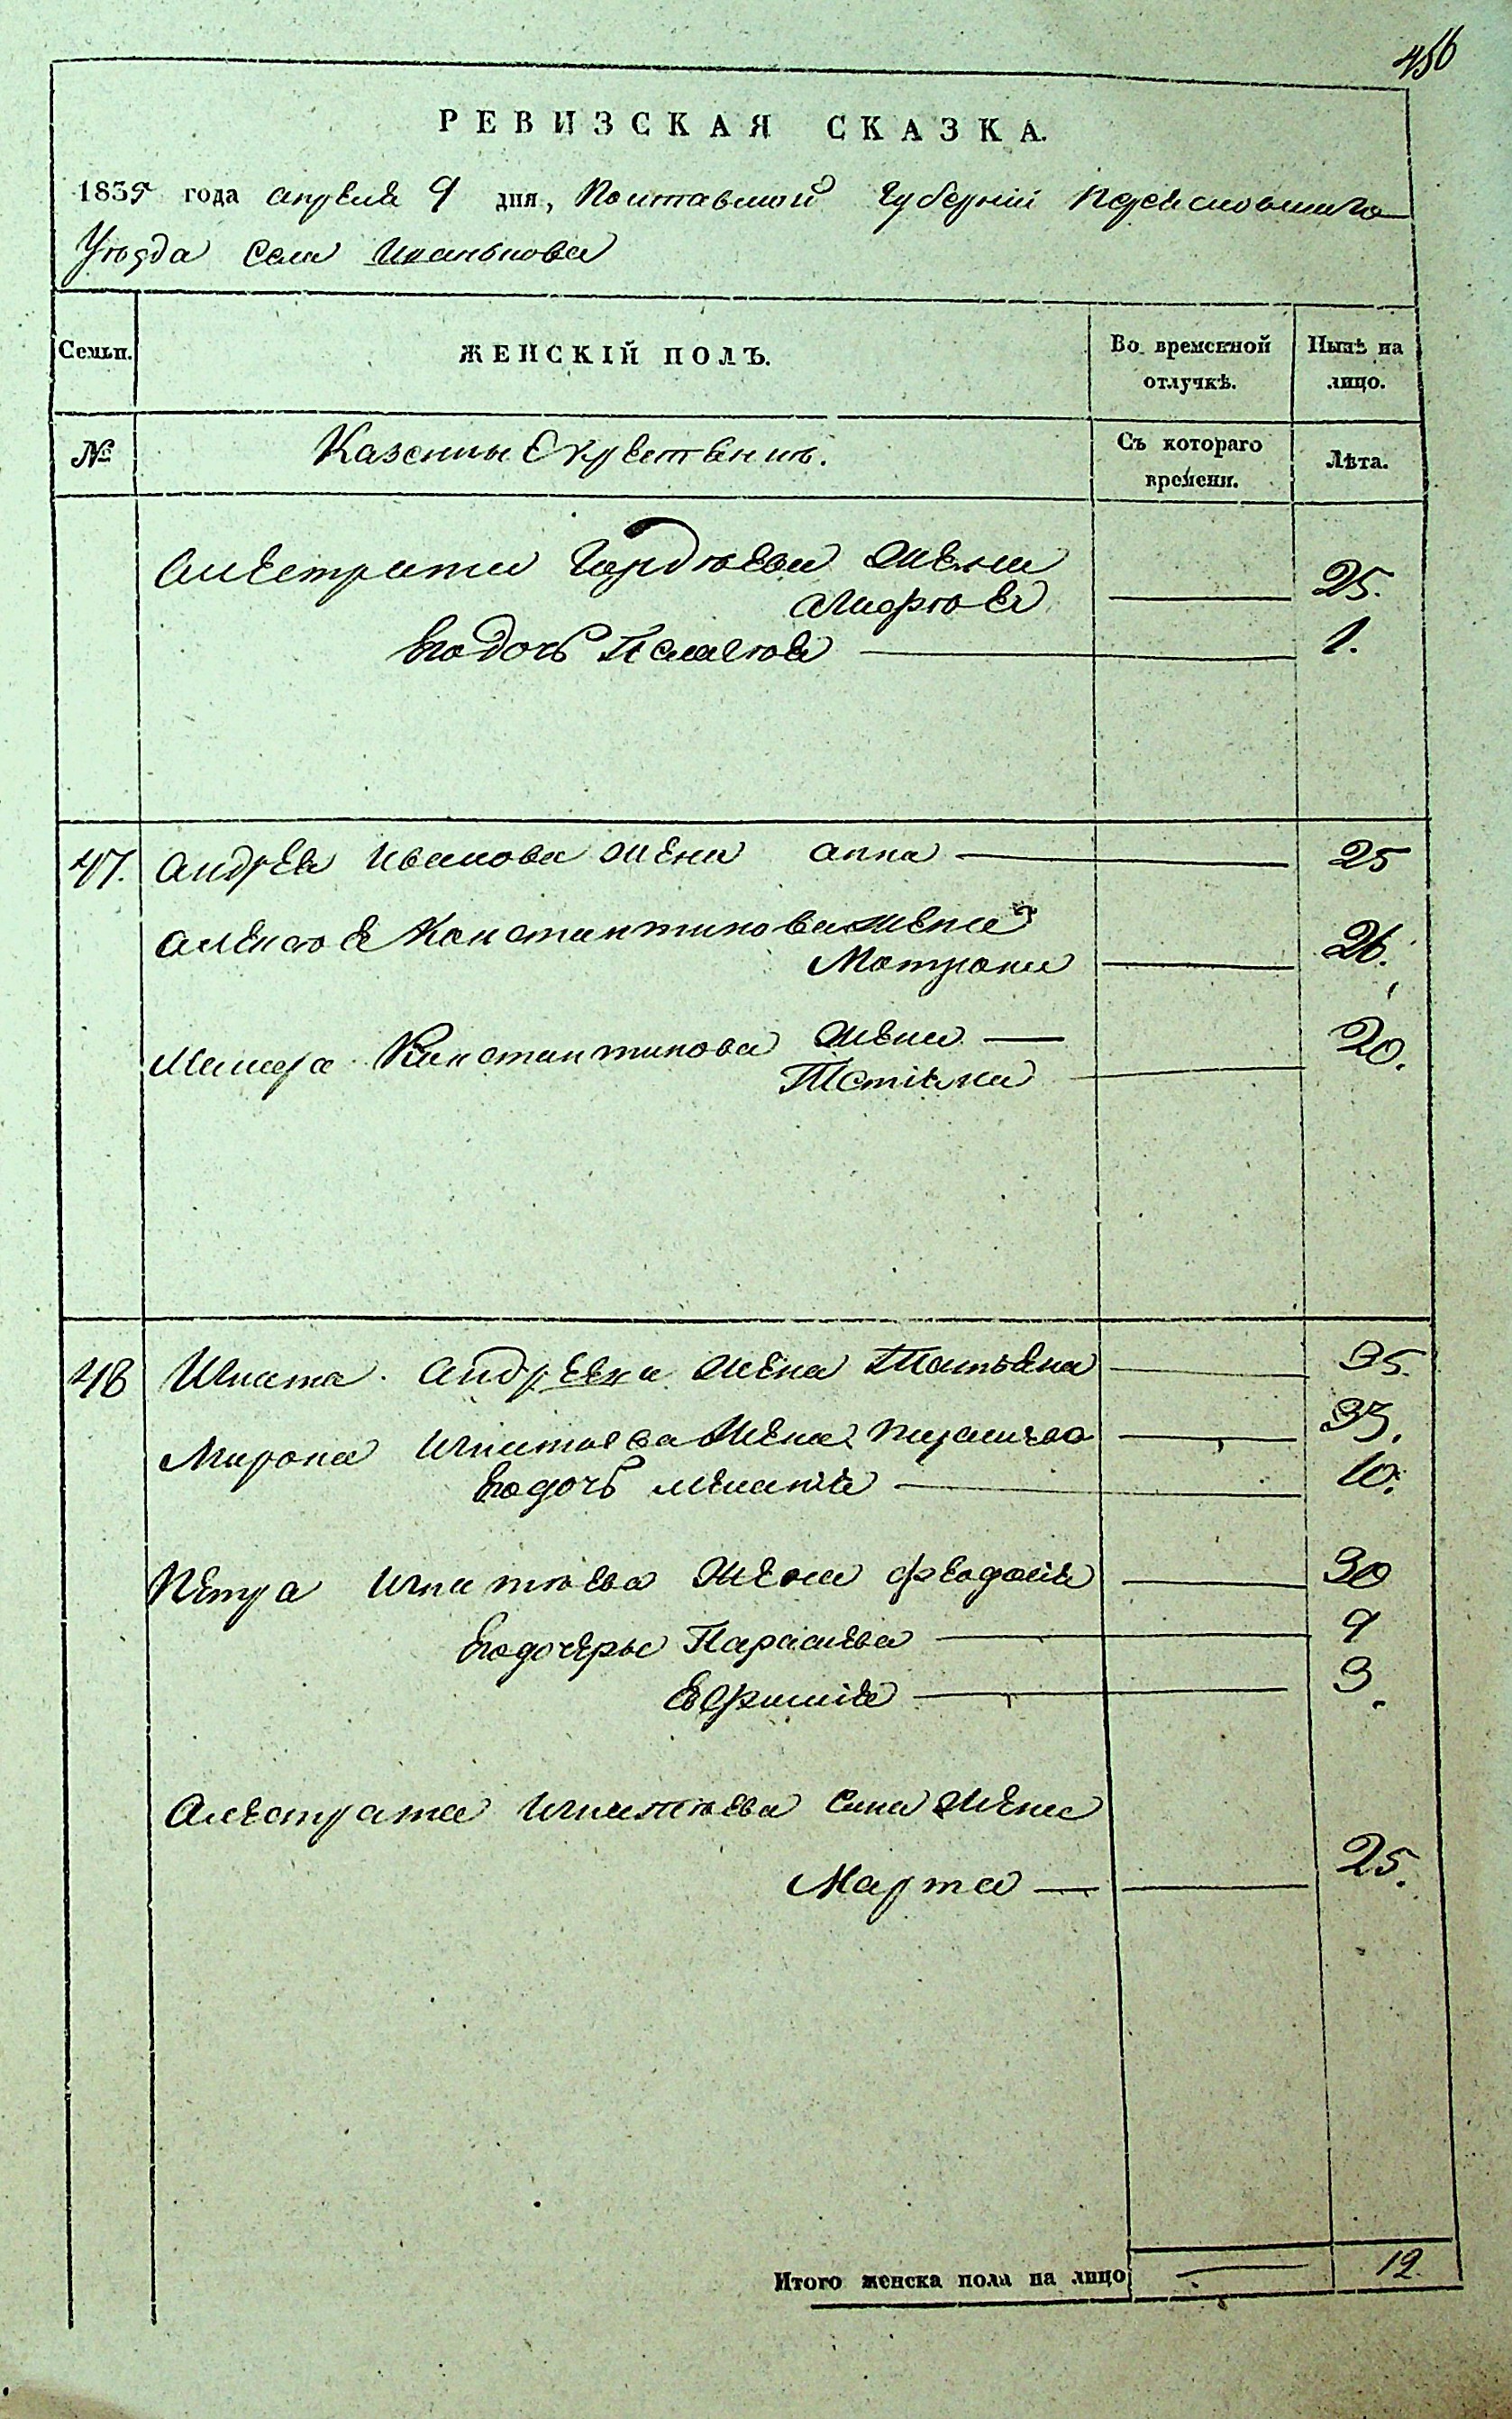 456
РЕВИЗСКАЯ СКАЗКА.
1835 года апреля 9 дня, Полтавской Губерніи Переясловского
Уѣзда Села Иванькова
Семьи. ЖЕНСКІЙ ПОЛЪ. Во временной отлучкѣ. Нынѣ на лицо.
№ Казенные Крестьяне. Съ котораго времени. Лѣта.
Гордѣева жена
Марфа 25.
Его дочь 1.
47. Андрея Иванова жена анна 25
алексѣя Константинова жена
Матрона 26.
Константинова жена
Тетіяна 20.
48 Игната андреева жена Татьяна 35.
Мирона Игнатьева жена 35.
Его дочь меланія 10.
Петра Игнатьева жена феодосія 30
Его дочеры Параскева 9
Ефимія 3.
Алистрата Игнатьева сина жена
Марта 25.
Итого женска пола на лицо 12.